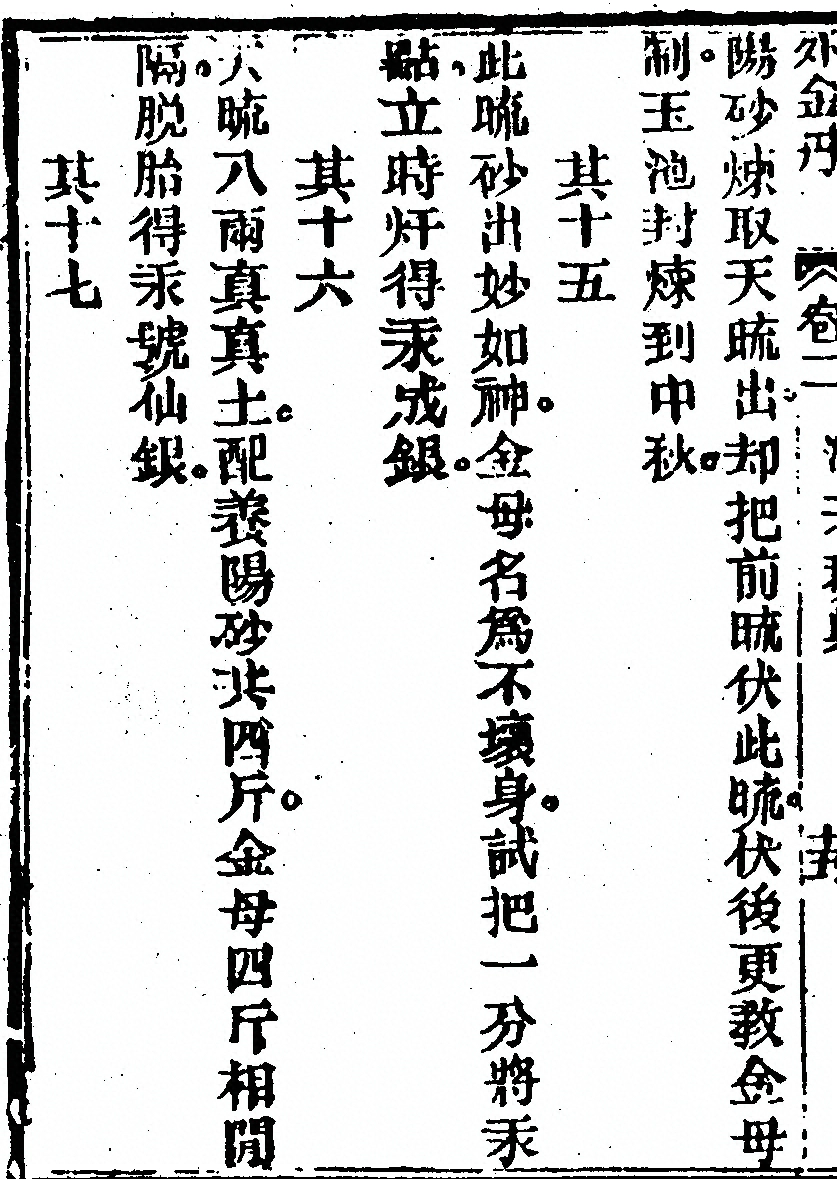 外金丹 卷二
陽砂煉取天𥑮出却把前𥑮伏此𥑮伏後更教金母
制玉池封煉到中秋
其十五
此𥑮砂出妙如神金母名為不壞身試把一分將汞
點立時煿得汞成銀
其十六
天𥑮八兩真真土配養陽砂共四斤金母四斤相間
隔脱胎得汞號仙銀
其十七